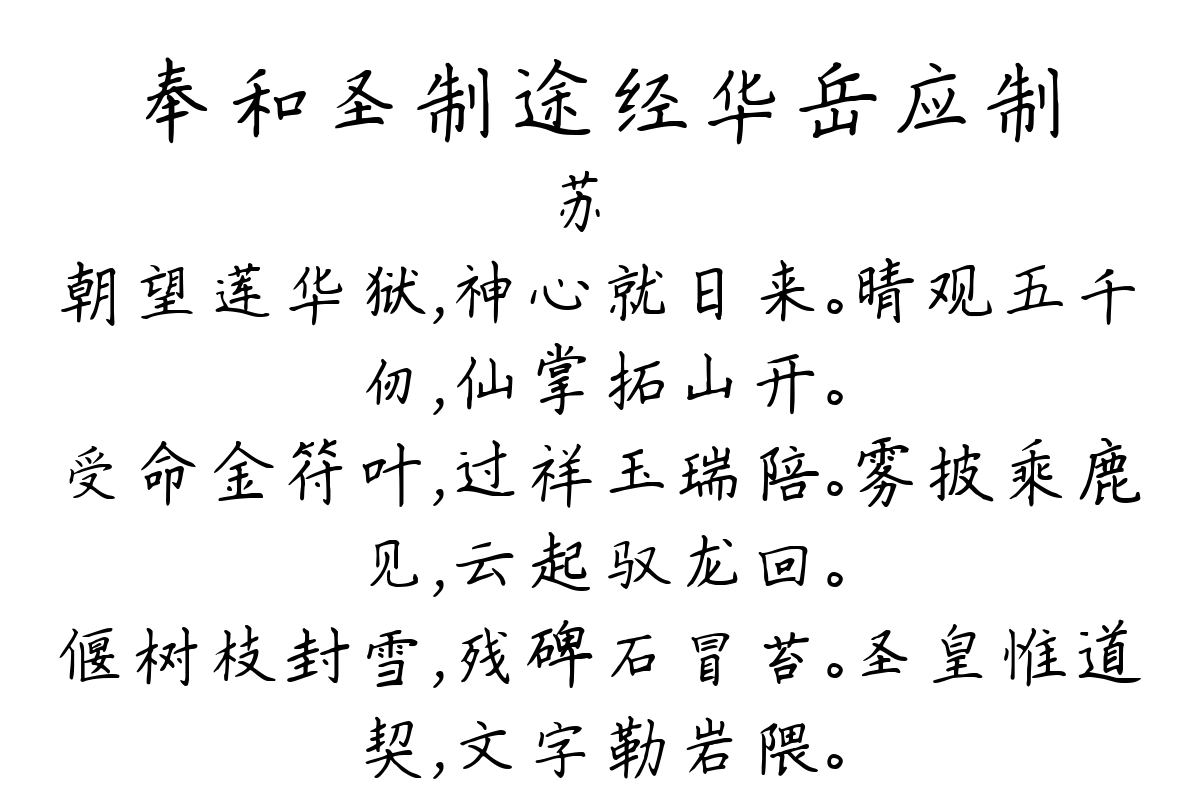 奉和圣制途经华岳应制
苏
朝望莲华狱,神心就日来。晴观五千
仞,仙掌拓山开。
受命金符叶,过祥玉瑞陪。雾披乘鹿
见,云起驭龙回。
偃树枝封雪,残碑石冒苔。圣皇惟道
契,文字勒岩隈。